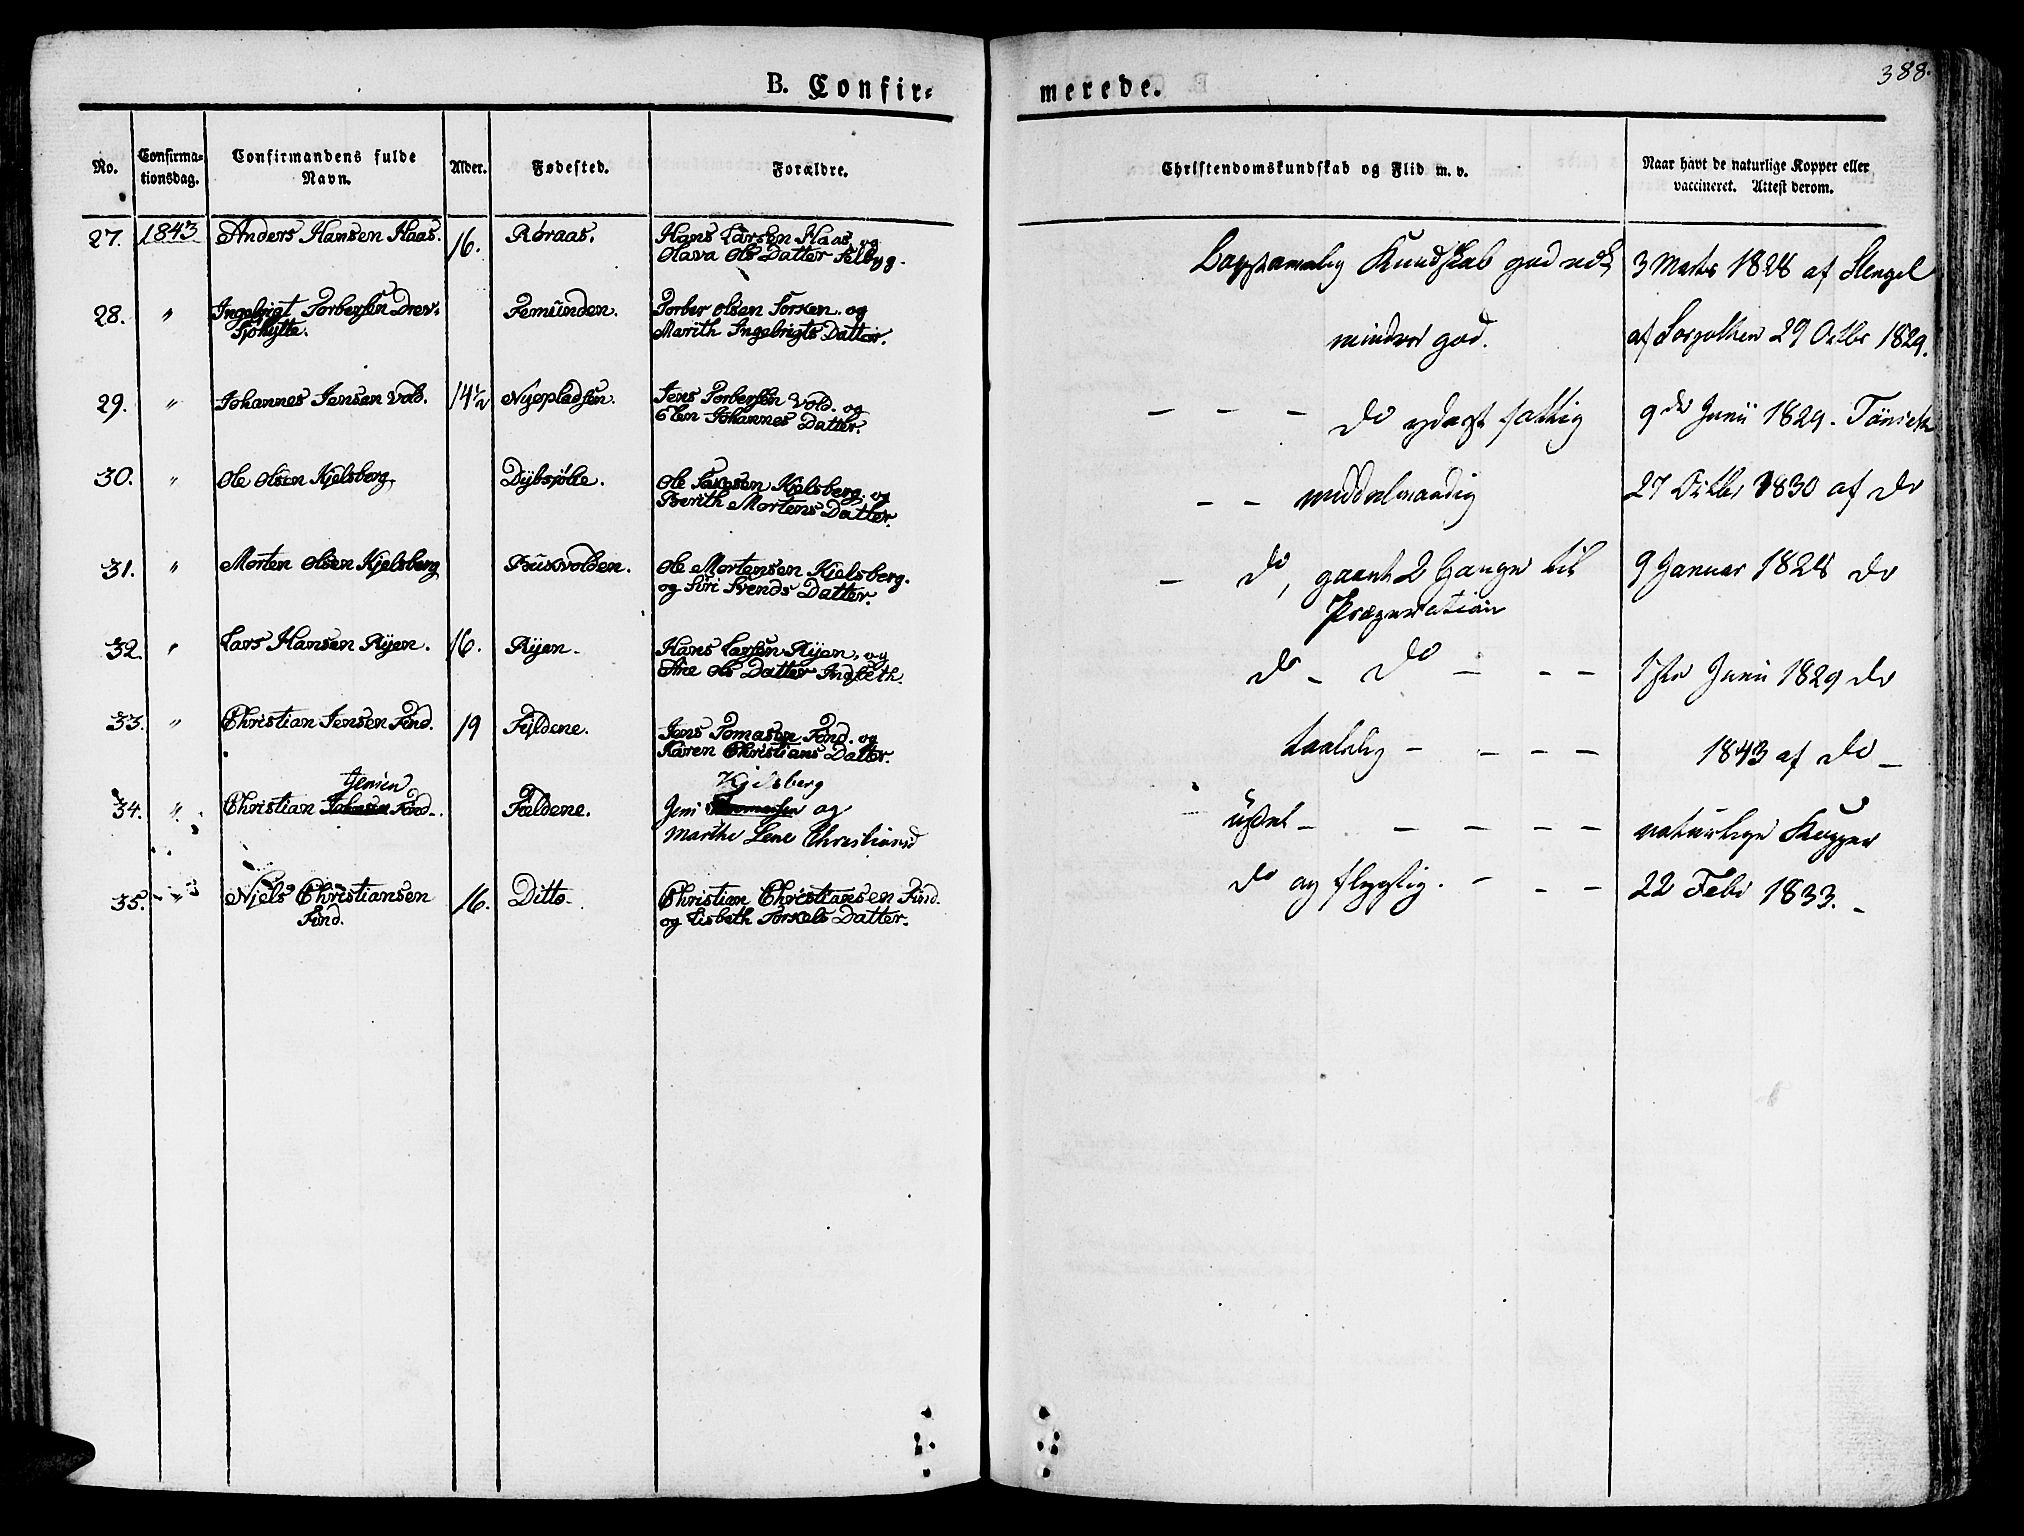 388.
B. Confir-
merede.
No.
Confirma-
tionsdag.
Confirmandens fulde
Navn.
Alder.
Fødested.
Forældre.
Christendomskundskab og Flid m. v.
Naar havt de naturlige Kopper eller
vaccineret. Attest derom.
27. 1843 Anders Hansen Haas. 16. Røraas. Hans Larsen Haas og
Olava Ols Datter Selbyg.
Kundskab god nok 3 Marts 1828 af Stengel
28. " Ingebrigt Torbersen Drev- Femunden. Torber Olsen Sorken. og
sjøhytte. Marith Ingebrigts Datter.
mindre god. af 29 Octbr 1829.
29. " Johannes Jensen Vold. 14½ Nyepladsen. Jens Torbersen Vold. og
Elen Johannes Datter.
— — — do yderst fattig 9de Junii 1829. Tönseth
30. " Ole Olsen Kjelsberg Dybsjølie. Ole Olsen Kjelsberg. og
Berith Mortens Datter.
— — middelmaadig 27 Octbr 1830 af do
31. " Morten Olsen Kjelsberg Buskvolden. Ole Mortensen Kjelsberg.
og Siri Svends Datter.
— do, gaaet 2 Gange til 9 Januar 1828 do
Præparation
32. " Lars Hansen Ryen. 16. Ryen. Hans Larsen Ryen, og
Ane Ols Datter Indseth.
do — do — — — 1ste Junii 1829 do
33. " Christian Jensen Find. 19 Fjeldene. Jens Tomasen Find. og
Karen Christians Datter.
taalelig — — — — 1843 af do —
Jensen
Kjelsberg
34. " Christian Johnsen Find. Fjeldene. Jens Thomassen og
Marthe Lene Christiansd
üstel — — — — — naturlige Kopper
35. " Niels Christiansen 16. Ditto. Christian Christiansen Find.
Find. og Lisbeth Torkels Datter.
do og flygtig. — — — 22 Febr 1833. —